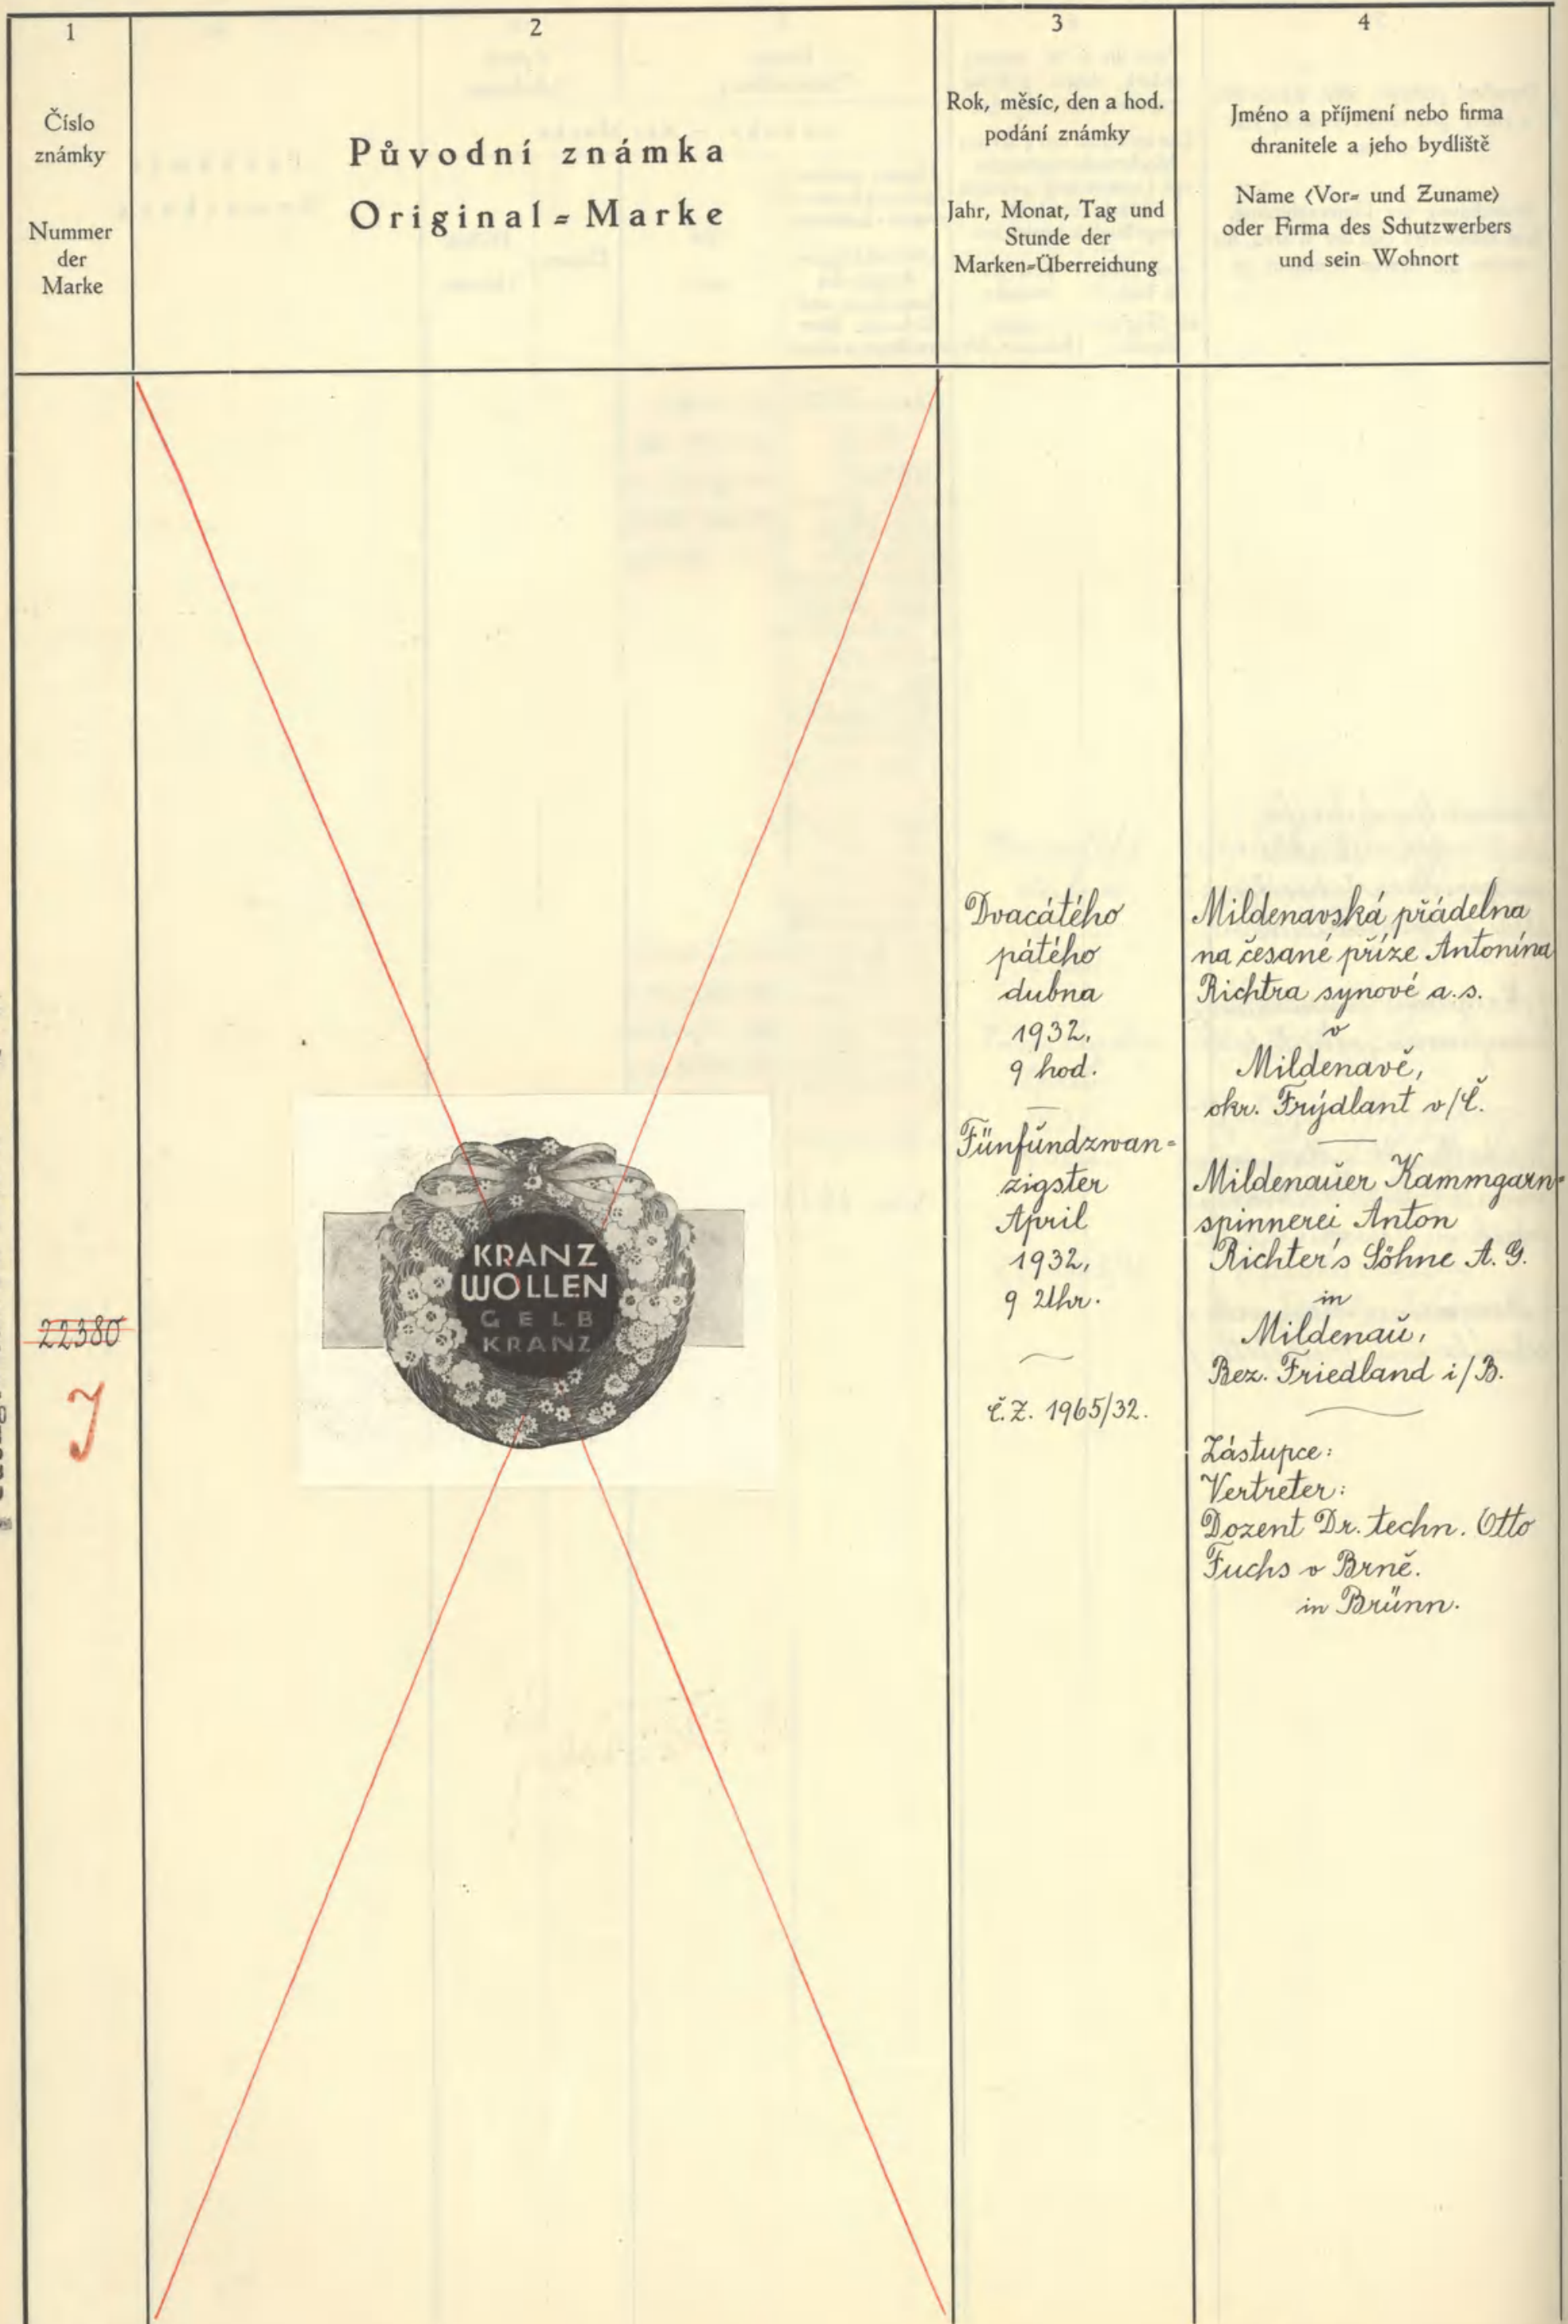 1
Číslo
známky
Nummer
der
Marke
2
Původní známka
Original=Marke
3
Rok, měsíc, den a hod.
podání známky
Jahr, Monat, Tag und
Stunde der
Marken=Überreichung
4
Jméno a příjmení nebo firma
chranitele a jeho bydliště
Name (Vor= und Zuname)
oder Firma des Schutzwerbers
und sein Wohnort
22380
KRANZ
WOLLEN
GELB
KRANZ
Dvacátého
pátého
dubna
1932.
9 hod.
Fünfundzwan=
zigster
April
1932,
9 Uhr.
č.Z. 1965/32.
Mildenavská přádelna
na česané příze Antonína
Richtra synové a.s.
v
Mildenavě,
okr. Frýdlant v/Č.
Mildenauer Kammgarn=
spinnerei Anton
Richter's Söhne A.G.
in
Mildenau,
Bez. Friedland i/B.
Zástupce:
Vertreter:
Dozent Dr. techn. Otto
Fuchs v Brně.
in Brünn.